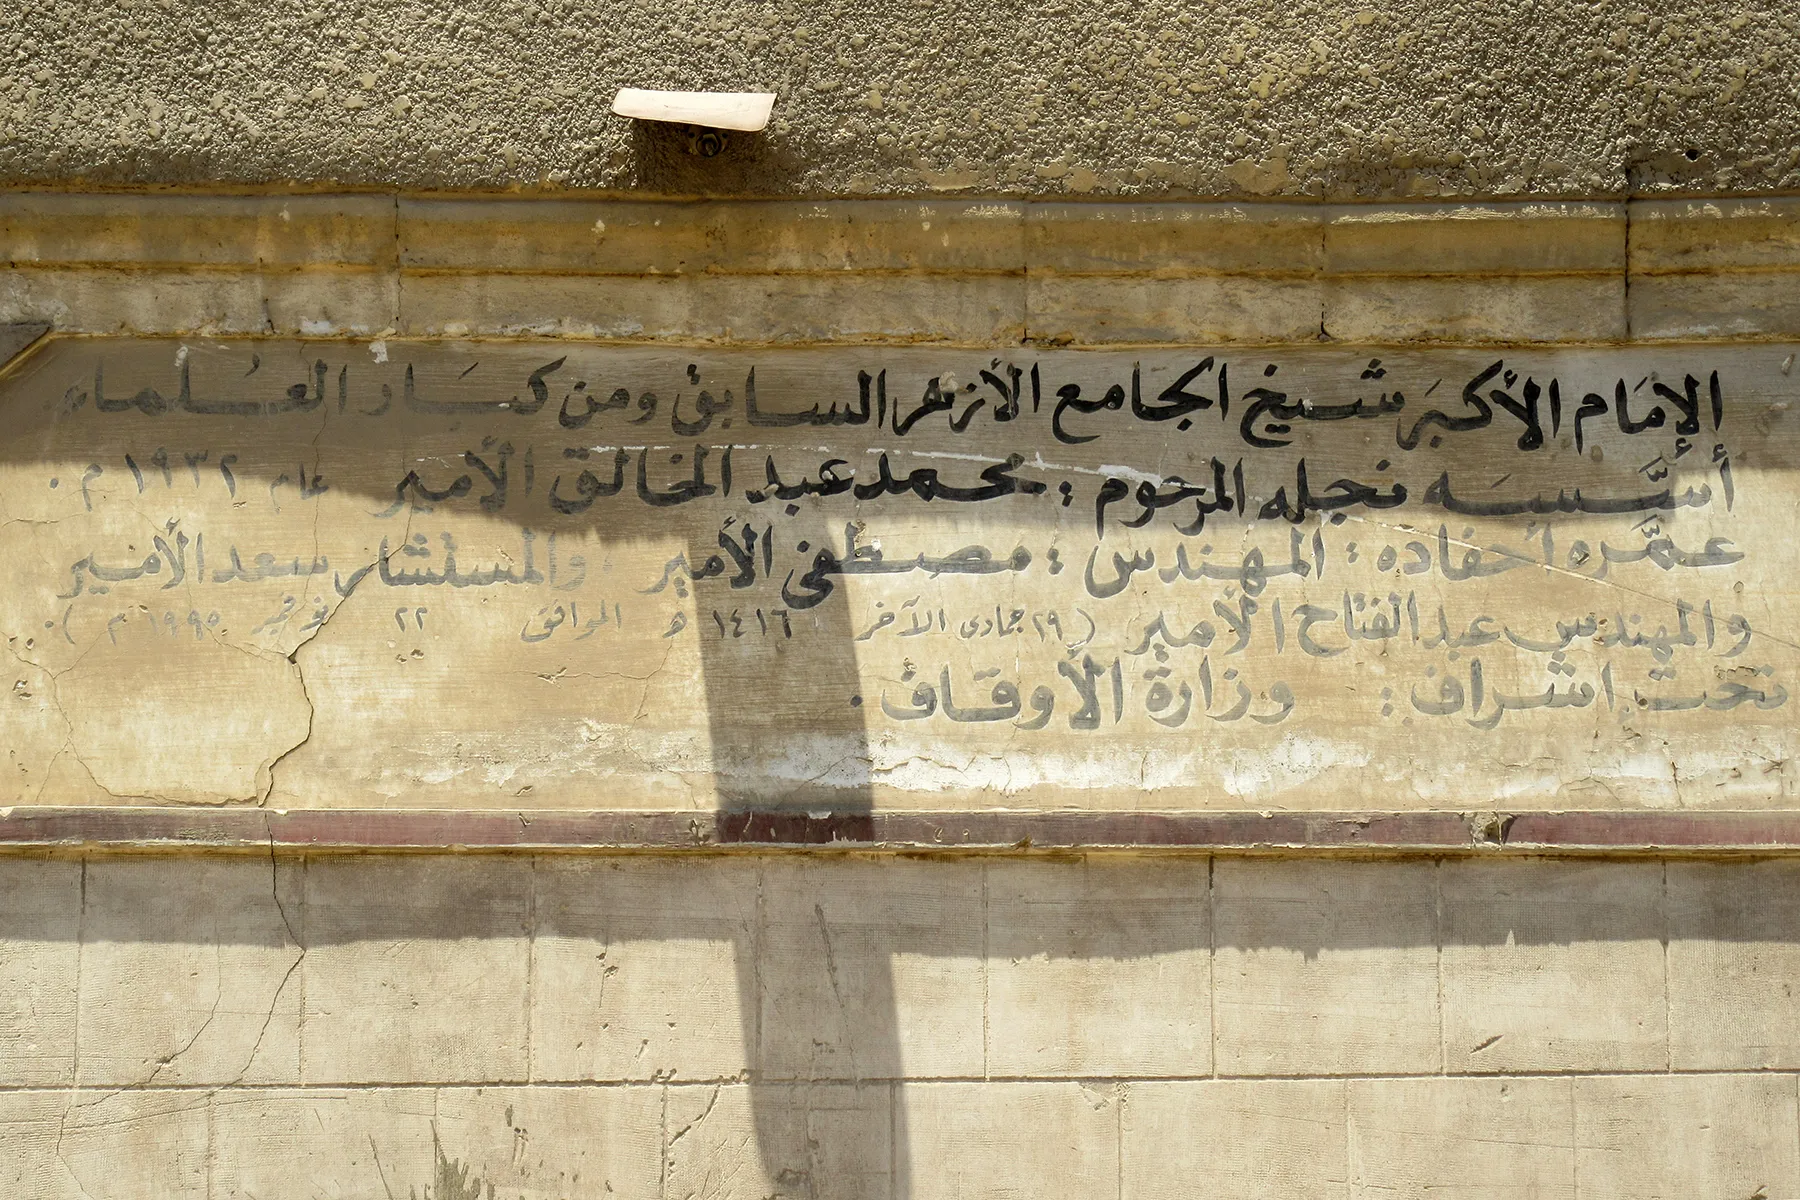 الإمَام الأكبَر شيخ الجامع الأزهر السابق ومن كبَار العُلماء
أسَّسَه نجله المرحوم : محمد عبد الخالق الأمير عام ١٩٣٢ م .
عمَّره أحفاده : المهندس : مصطفى الأمير ، والمستشار سعد الأمير
والمهندس عبد الفتاح الأمير ( ٢٩ جمادى الآخر ١٤١٦ هـ الموافق ٢٢ نوفمبر ١٩٩٥ م ) .
تحت اشراف : وزارة الأوقاف .